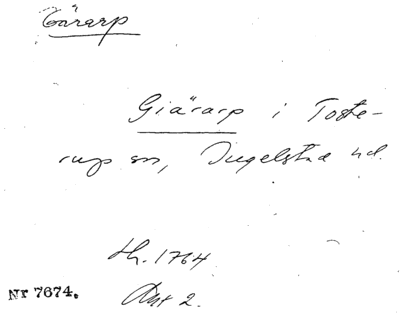 Gärarp
Giärarp i Toste-
rup sn, Ingelstad hd.
th. 1764
Ant 2.
Nr 7674.